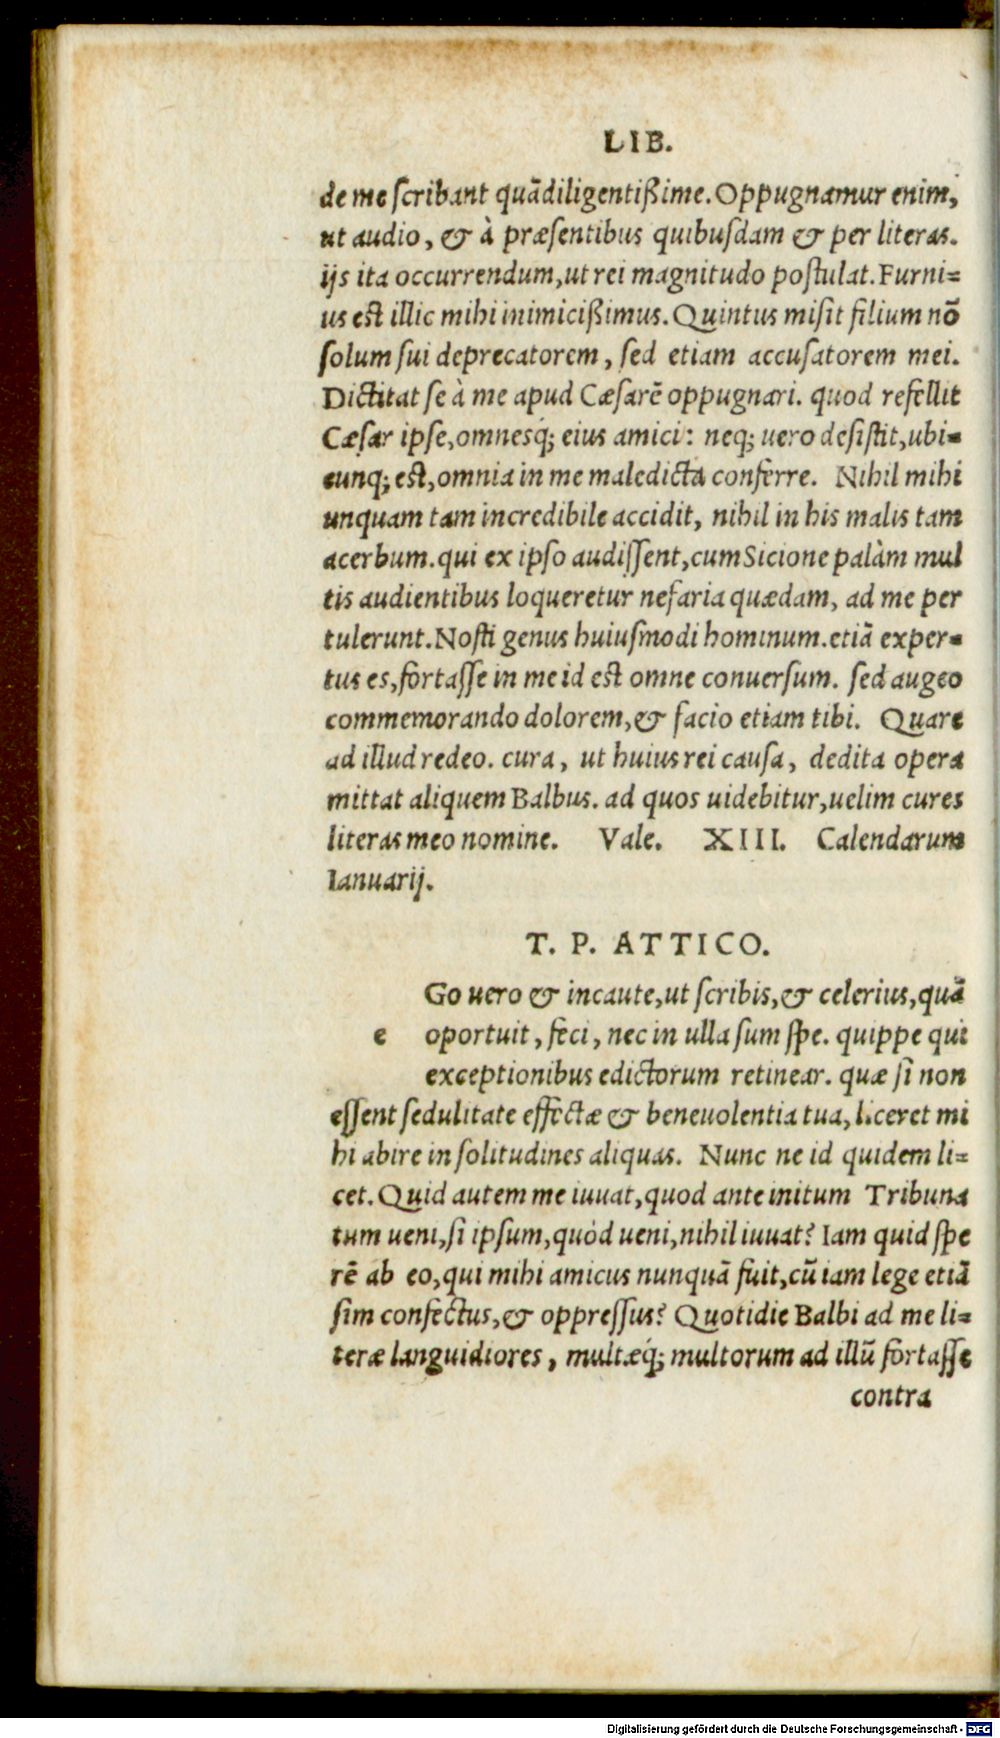 LIB.
de me scribant quãdiligentißime. Oppugnamur enim,
ut audio, & à præsentibus quibusdam & per literas.
ijs ita occurrendum, ut rei magnitudo postulat. Furni=
us est illic mihi inimicißimus. Quintus misit filium nõ
solum sui deprecatorem, sed etiam accusatorem mei.
Dictitat se à me apud Cæsarẽ oppugnari. quod refellit
Cæsar ipse, omnesq́; eius amici: neq; uero desistit, ubi=
cunq; est, omnia in me maledicta conferre. Nihil mihi
unquam tam incredibile accidit, nihil in his malis tam
acerbum. qui ex ipso audissent, cum Sicione palàm mul
tis audientibus loqueretur nefaria quædam, ad me per
tulerunt. Nosti genus huiusmodi hominum. etiã exper=
tus es, fortasse in me id est omne conuersum. sed augeo
commemorando dolorem, & facio etiam tibi. Quare
ad illud redeo. cura, ut huius rei causa, dedita opera
mittat aliquem Balbus. ad quos uidebitur, uelim cures
literas meo nomine. Vale. XIII. Calendarum
Ianuarij.
T. P. ATTICO.
Go uero & incaute, ut scribis, & celerius, quã
e oportuit, feci, nec in ulla sum spe. quippe qui
exceptionibus edictorum retinear. quæ si non
essent sedulitate effectæ & beneuolentia tua, liceret mi
hi abire in solitudines aliquas. Nunc ne id quidem li=
cet. Quid autem me iuuat, quod ante initum Tribuna
tum ueni, si ipsum, quòd ueni, nihil iuuat? Iam quid spe
rẽ ab eo, qui mihi amicus nunquã fuit, cũ iam lege etiã
sim confectus, & oppressus? Quotidie Balbi ad me li=
teræ languidiores, multæq́; multorum ad illũ fortasse
contra
Digitalisierung gefördert durch die Deutsche Forschungsgemeinschaft - DFG